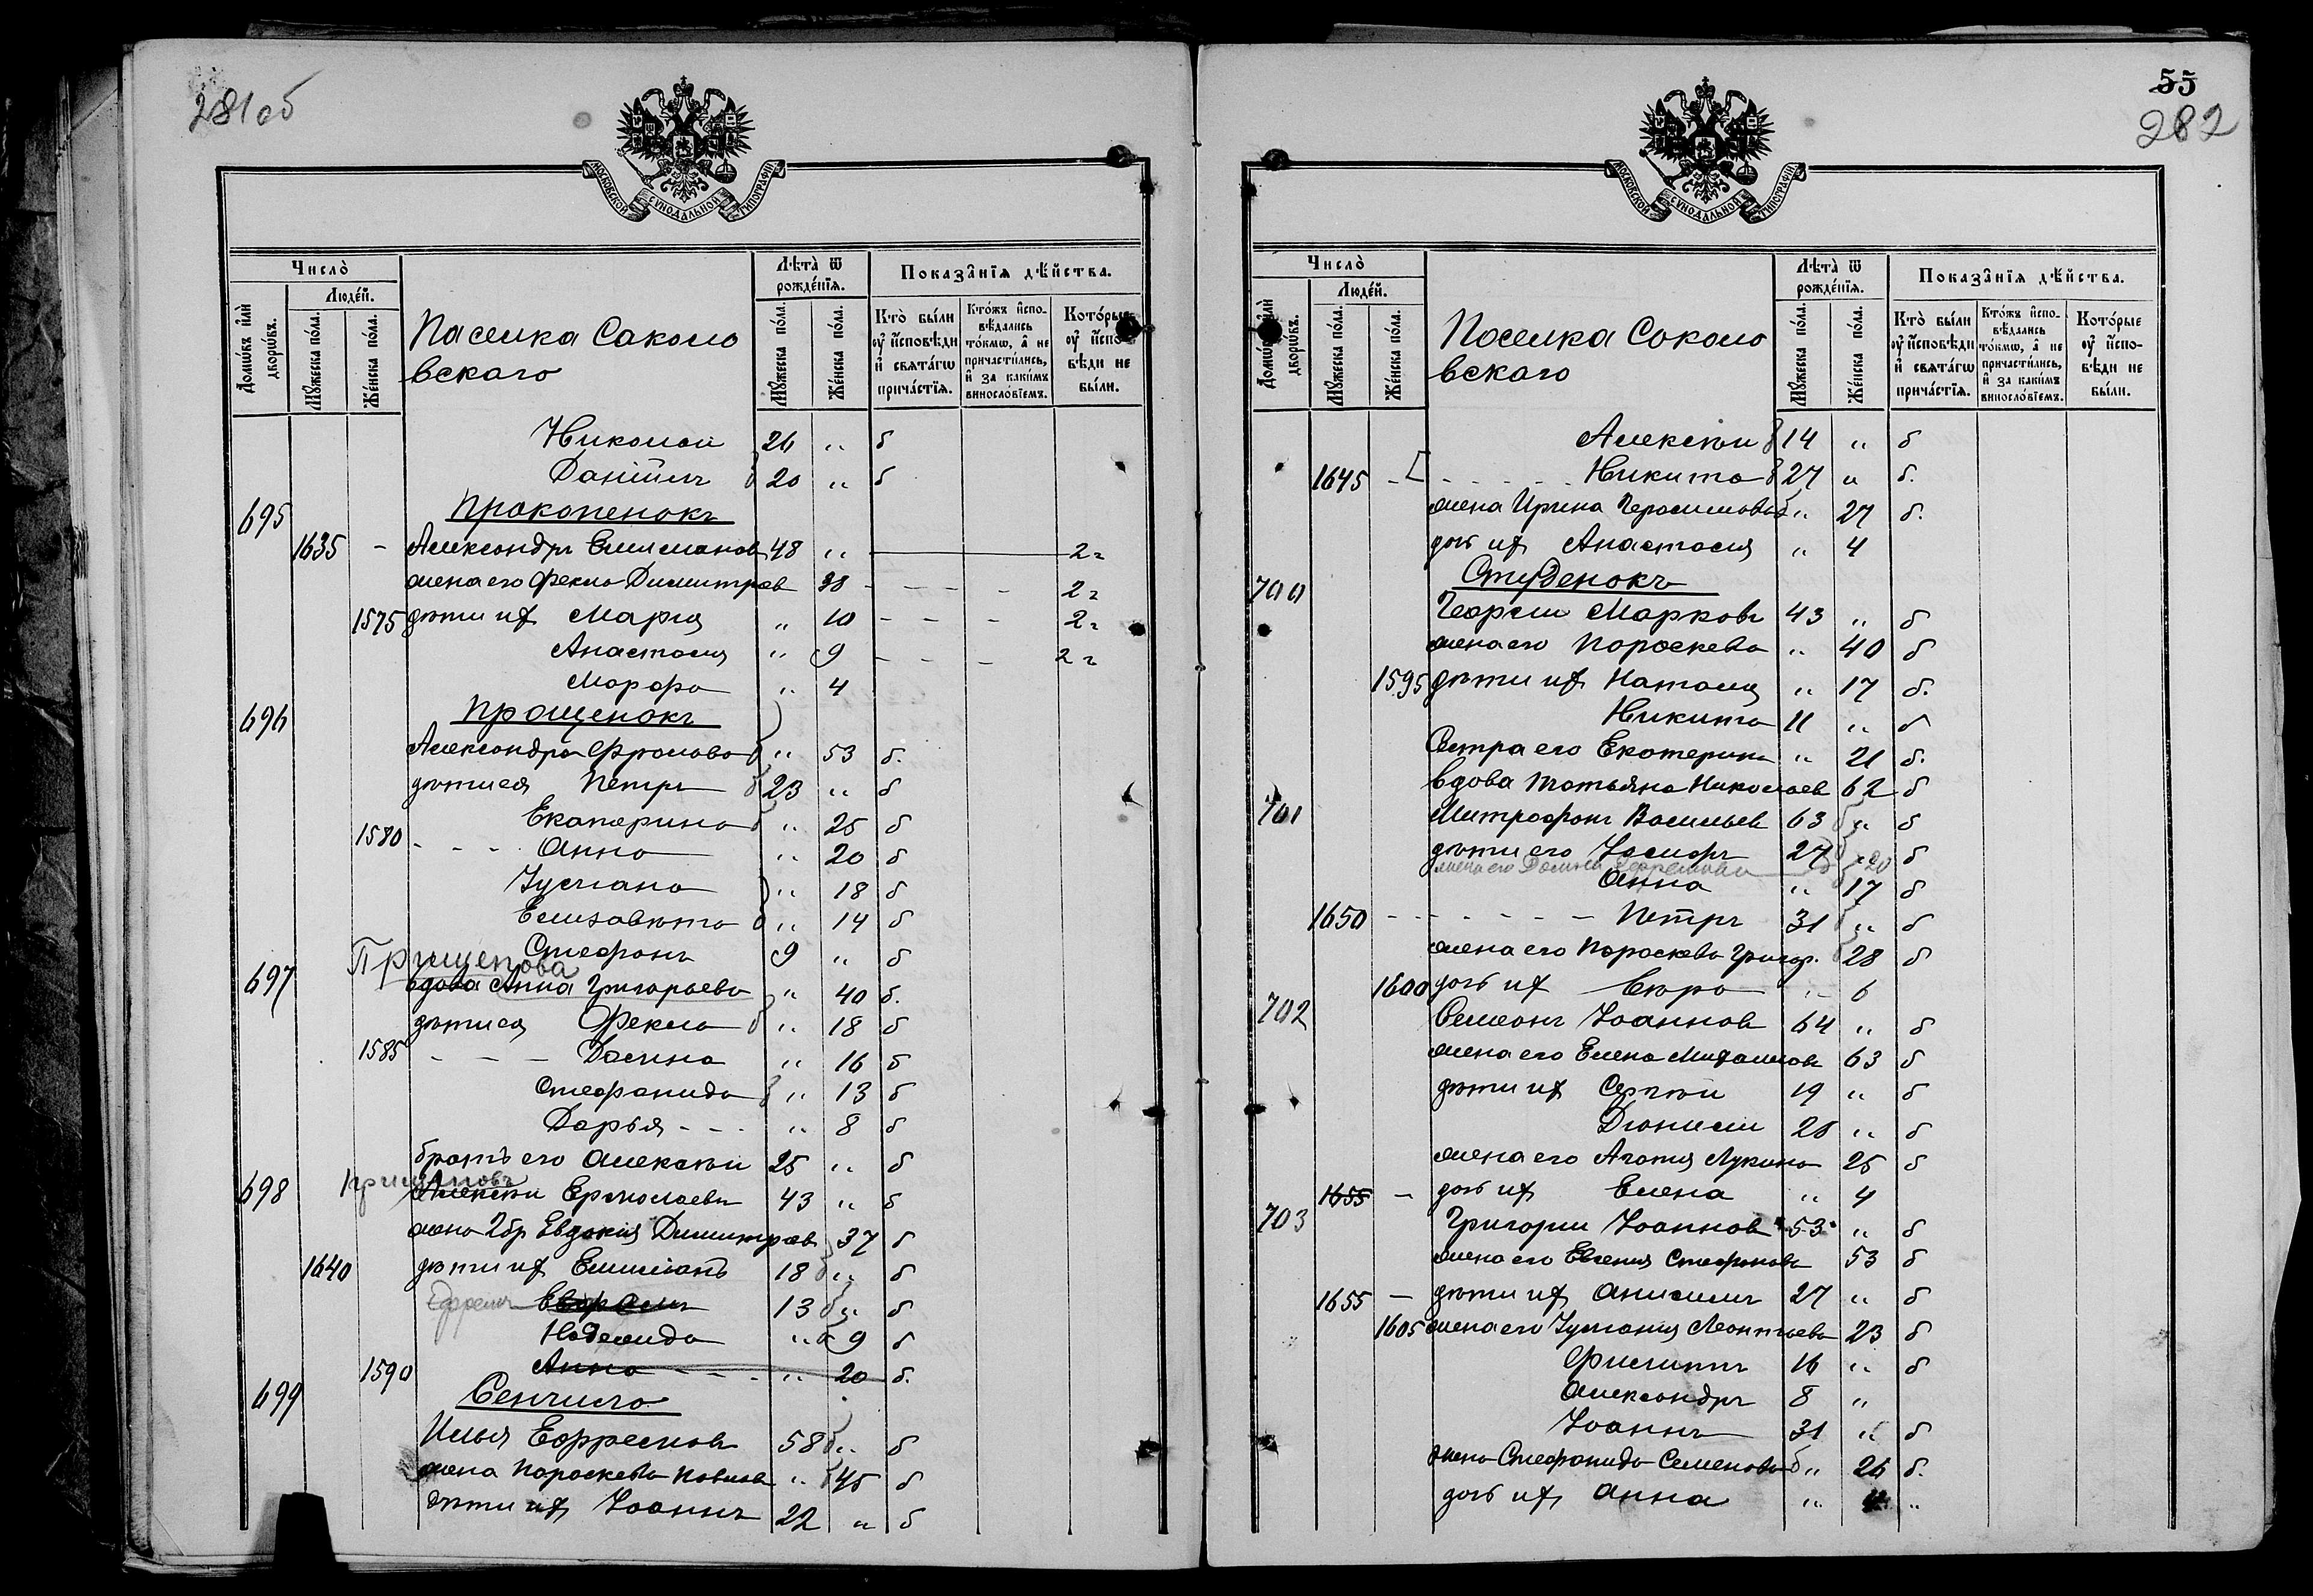 281об
МОСКОВСКОЙ СУНОДАЛЬНОЙ ТИПОГРАФІИ
Число̀
Людéй.
Домѡ́въ и҆лѝ дворѡ́въ.
Мꙋ́жеска по́ла.
Же́нска по́ла.
Поселка Соколо
вскаго
Лѣ́та ѿ рожде́нїѧ.
Мꙋ́жеска по́ла.
Же́нска по́ла.
Показа̑нїѧ дѣ́йства.
Кто̀ бы́ли ᲂу҆ и҆сповѣ́ди и҆ свѧта́гѡ прича́стїѧ.
Кто́жъ и҆спо-вѣ́дались то́кмѡ, а҆ не причасти́лись, и҆ за каки́мъ винослові́емъ.
Кото́рые ᲂу҆ и҆спо-вѣ́ди не бы́ли.
Николай 26 " б
Даніилъ 20 " б
695 Прокопенокъ
1635 - Александръ Емилианов 48 " 2г
жена его Фекла Димитров 38 - - - - 2г
1575 дѣти их Марія " 10 - - - 2г
Анастасія " 9 - - - 2г
Марфа " 4
696 Прощенокъ
Александра Фролова " 53 б.
дѣти ея Петръ 23 " б
Екатерина " 25 б
1580 - - - Анна " 20 б
Іуліана " 18 б
Елизавета " 14 б
Стефанъ 9 " б
Прищепова
697 вдова Анна Григорьева " 40 б.
дѣти ея Фекла " 18 б
1585 - - - Домна " 16 б
Стефанида " 13 б
Дарья - - - " 8 б
братъ его Алексѣй 25 " б
698 Алексѣй Ермолаевъ 43 " б
жена 2бр Евдокія Димитров 37 б
1640 дѣти их Емиліанъ 18 " б
Ефремъ 13 " б
Надежда " 9 б
1590 Анна - - - " 20 б.
699 Сенчило
Илья Ефремов 58 " б
жена Параскева Павлов " 45 б
дѣти их Іоаннъ 22 " б
55
282
МОСКОВСКОЙ СУНОДАЛЬНОЙ ТИПОГРАФІИ
Число̀
Людéй.
Мꙋ́жеска по́ла.
Же́нска по́ла.
Поселка Соколо
вскаго
Лѣ́та ѿ рожде́нїѧ.
Мꙋ́жеска по́ла.
Же́нска по́ла.
Показа̑нїѧ дѣ́йства.
Кто̀ бы́ли ᲂу҆ и҆сповѣ́ди и҆ свѧта́гѡ прича́стїѧ.
Кто́жъ и҆спо-вѣ́дались то́кмѡ, а҆ не причасти́лись, и҆ за каки́мъ винослові́емъ.
Кото́рые ᲂу҆ и҆спо-вѣ́ди не бы́ли.
Алексѣй 14 " б
1645 - [ - - - - Никита 27 " б.
жена Ирина Герасимова " 27 б.
дочь их Анастасія " 4
700 Студенокъ
Георгій Марковъ 43 " б
жена его Параскева " 40 б
1595 дѣти их Наталія " 17 б.
Никита 11 " б
Сестра его Екатерина " 21 б.
вдова Татьяна Николаев 62 б
701 Митрофанъ Васильев 63 " б
дѣти его Іосифъ 27 " б
жена его Ефремова 20
Анна " 17 б
1650 - - - - - - Петръ 31 " б
жена его Параскева Григор. 28 б
1600 дочь их Вѣра " 6
702 Симеонъ Іоаннов 64 " б
жена его Елена Михаилов 63 б
дѣти их Сергѣй 19 " б
Діонисій 26 " б
жена его Агафія Лукина 25 б
1655 - дочь их Елена " 4
703 Григорій Іоаннов 53 " б
жена его Евгенія Стефанова 53 б
1655 - дѣти их Анисимъ 27 " б
1605 жена его Іуліанія Леонтьева 23 б
Филиппъ 16 " б
Александръ 8 "
Іоаннъ 31 " б
жена Стефанида Семенова " 26 б.
дочь их Анна " "